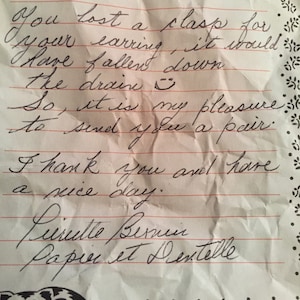 You lost a clasp for
your earring, it would
have fallen down
the drain ☺
So, it is my pleasure
to send you a pair.
Thank you and have
a nice day.
Papier et Dentelle